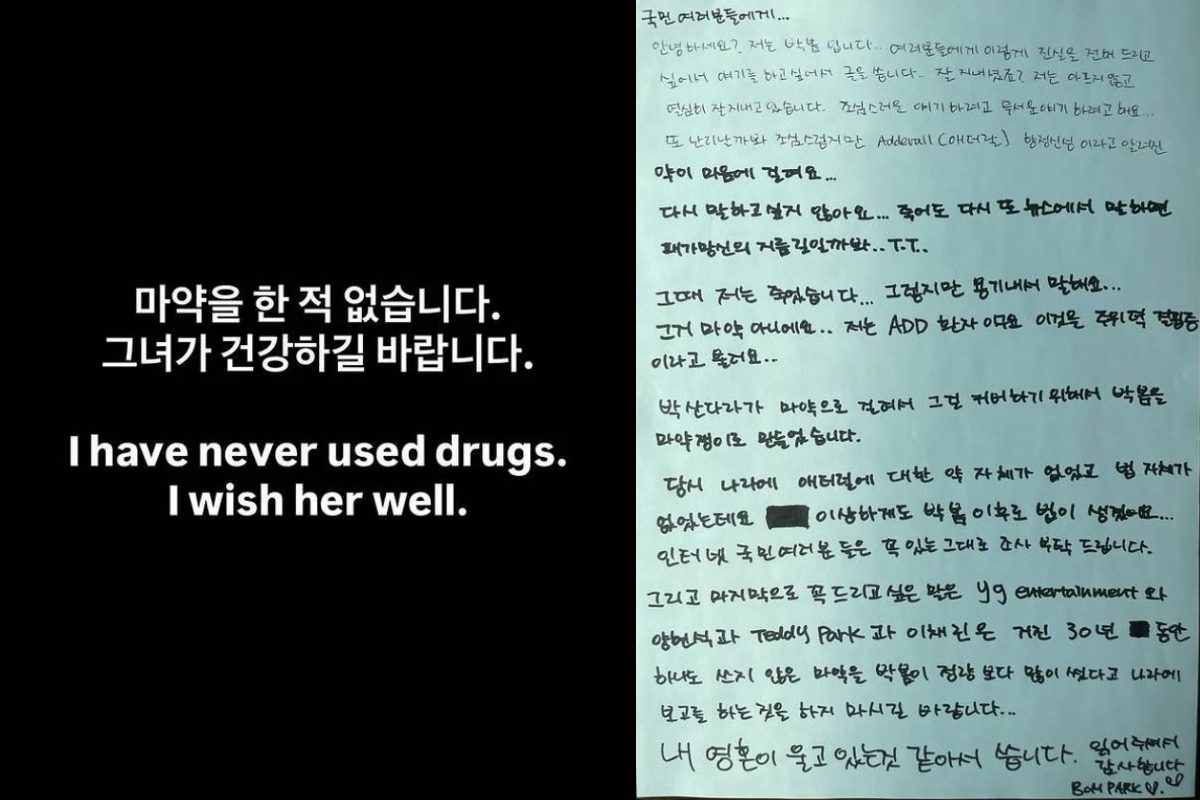 마약을 한 적 없습니다.
그녀가 건강하길 바랍니다.
I have never used drugs.
I wish her well.
국민 여러분들에게...
안녕하세요? 저는 박봄 입니다... 여러분들에게 이렇게 진실을 전해 드리고
싶어서 얘기를 하고싶어서 글을 씁니다. 잘 지내셨죠? 저는 아프지 않고
열심히 잘 지내고 있습니다. 조심스러운 얘기 하려고 무서운 얘기 하려고 해요...
또 난리날까봐 조심스럽지만 Adderall (애더럴) 향정신성 이라고 알려진
약이 마음에 걸려요...
다시 말하고 싶지 않아요... 죽어도 다시 또 뉴스에서 말하면
패가망신의 지름길일까봐.. T.T..
그때 저는 죽었습니다... 그렇지만 용기내서 말해요...
그거 마약 아니에요.. 저는 ADD 환자 이구요 이것은 주위력 결핍증
이라고 불러요..
박산다라가 마약으로 걸려서 그걸 커버하기 위해서 박봄을
마약쟁이로 만들었습니다.
당시 나라에 애더럴에 대한 약 자체가 없었고 법 자체가
없었는데요 이상하게도 박봄 이후로 법이 생겼어요...
인터넷 국민여러분 들은 꼭 있는그대로 조사 부탁 드립니다.
그리고 마지막으로 꼭 드리고 싶은 말은 yg entertainment 와
양현석과 Teddy Park 과 이채린은 거진 30년 동안
하나도 쓰지 않은 마약을 박봄이 정량 보다 많이 썼다고 나라에
보고를 하는것을 하지 마시길 바랍니다...
내 영혼이 울고 있는것 같아서 씁니다. 읽어주셔서
감사합니다
BOM PARK ♡.♡